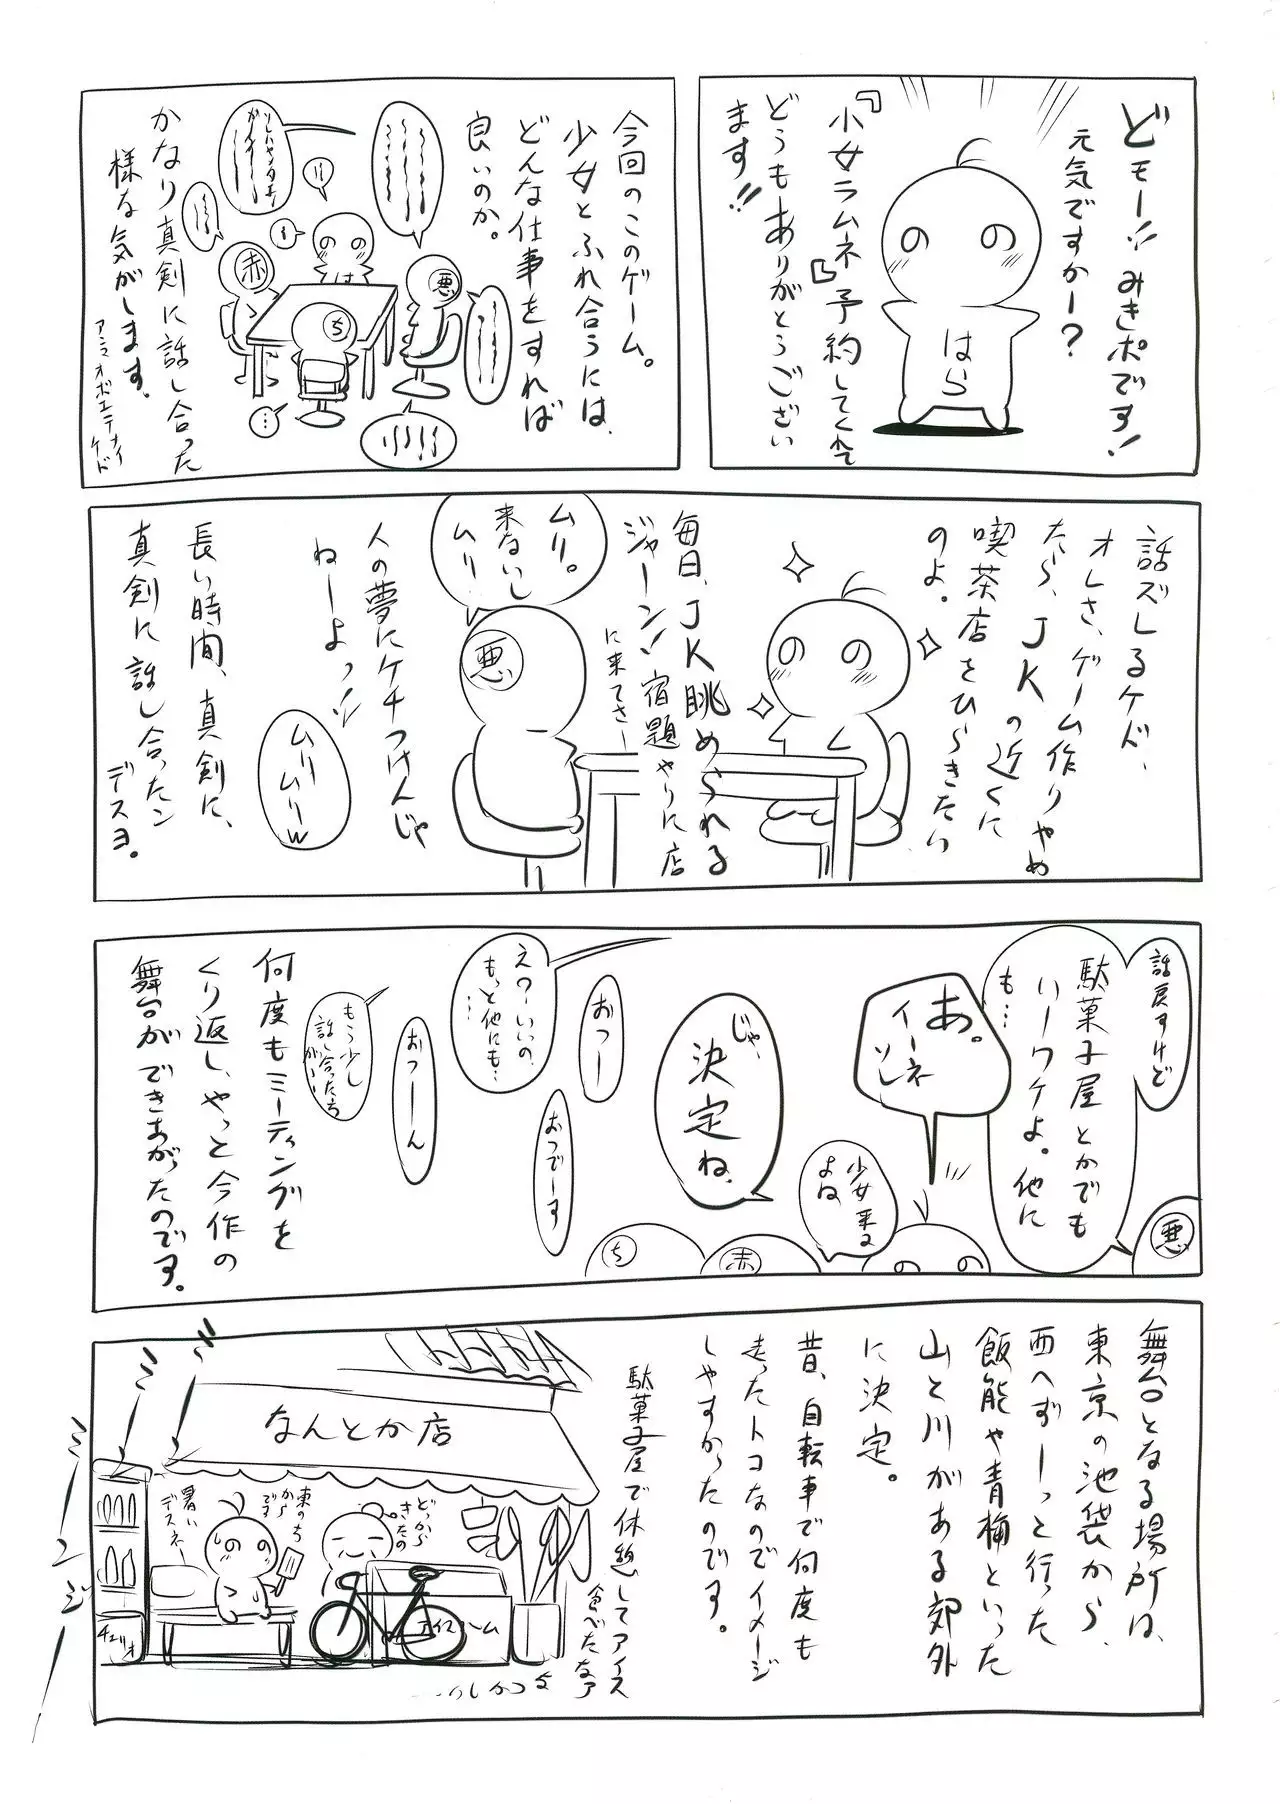 どモー!! みきポです!
元気ですかー?
はら
『少女ラムネ』予約してくれて
どうもありがとうござい
ます!!
今回のこのゲーム。
少女とふれ合うには、
どんな仕事をすれば
良いのか。
赤
は
悪
ち
かなり真剣に話し合った
様な気がします。
アンマオボエテナイ
ケド
話ズレるケド、
オレさ、ゲーム作りやめ
たら、JKの近くに
喫茶店をひらきたい
のよ。
毎日、JK眺められる
ジャーン!宿題やりに店
に来てさー
ムリ。
来ないし
ムリー
悪
人の夢にケチつけんじゃ
ねーよっ!!
ムリー
ムリーw
長い時間、真剣に、
真剣に話し合ったン
デスヨ。
話戻すけど
駄菓子屋とかでも
いーワケよ。他に
も…
悪
あ。
イーネ
ソレ
少女来る
よね
じゃ、
決定ね。
赤
ち
おつー
おつでーす
えっーいいの、
もっと他にも…
おつーん
もう少し
話し合ったら
がい…
何度もミーティングを
くり返し、やっと今作の
舞台ができあがったのです。
舞台となる場所は、
東京の池袋から、
西へずーっと行った
飯能や青梅といった
山と川がある郊外
に決定。
昔、自転車で何度も
走ったトコなのでイメージ
しやすかったのです。
駄菓子屋で休憩してアイス
食べたなァ
なつかしい…
なんとか店
どっから
きたの
東のち
からです
暑い
デスネー
アイスクリーム
チェリオ
ミーンジー
ミー
ミー